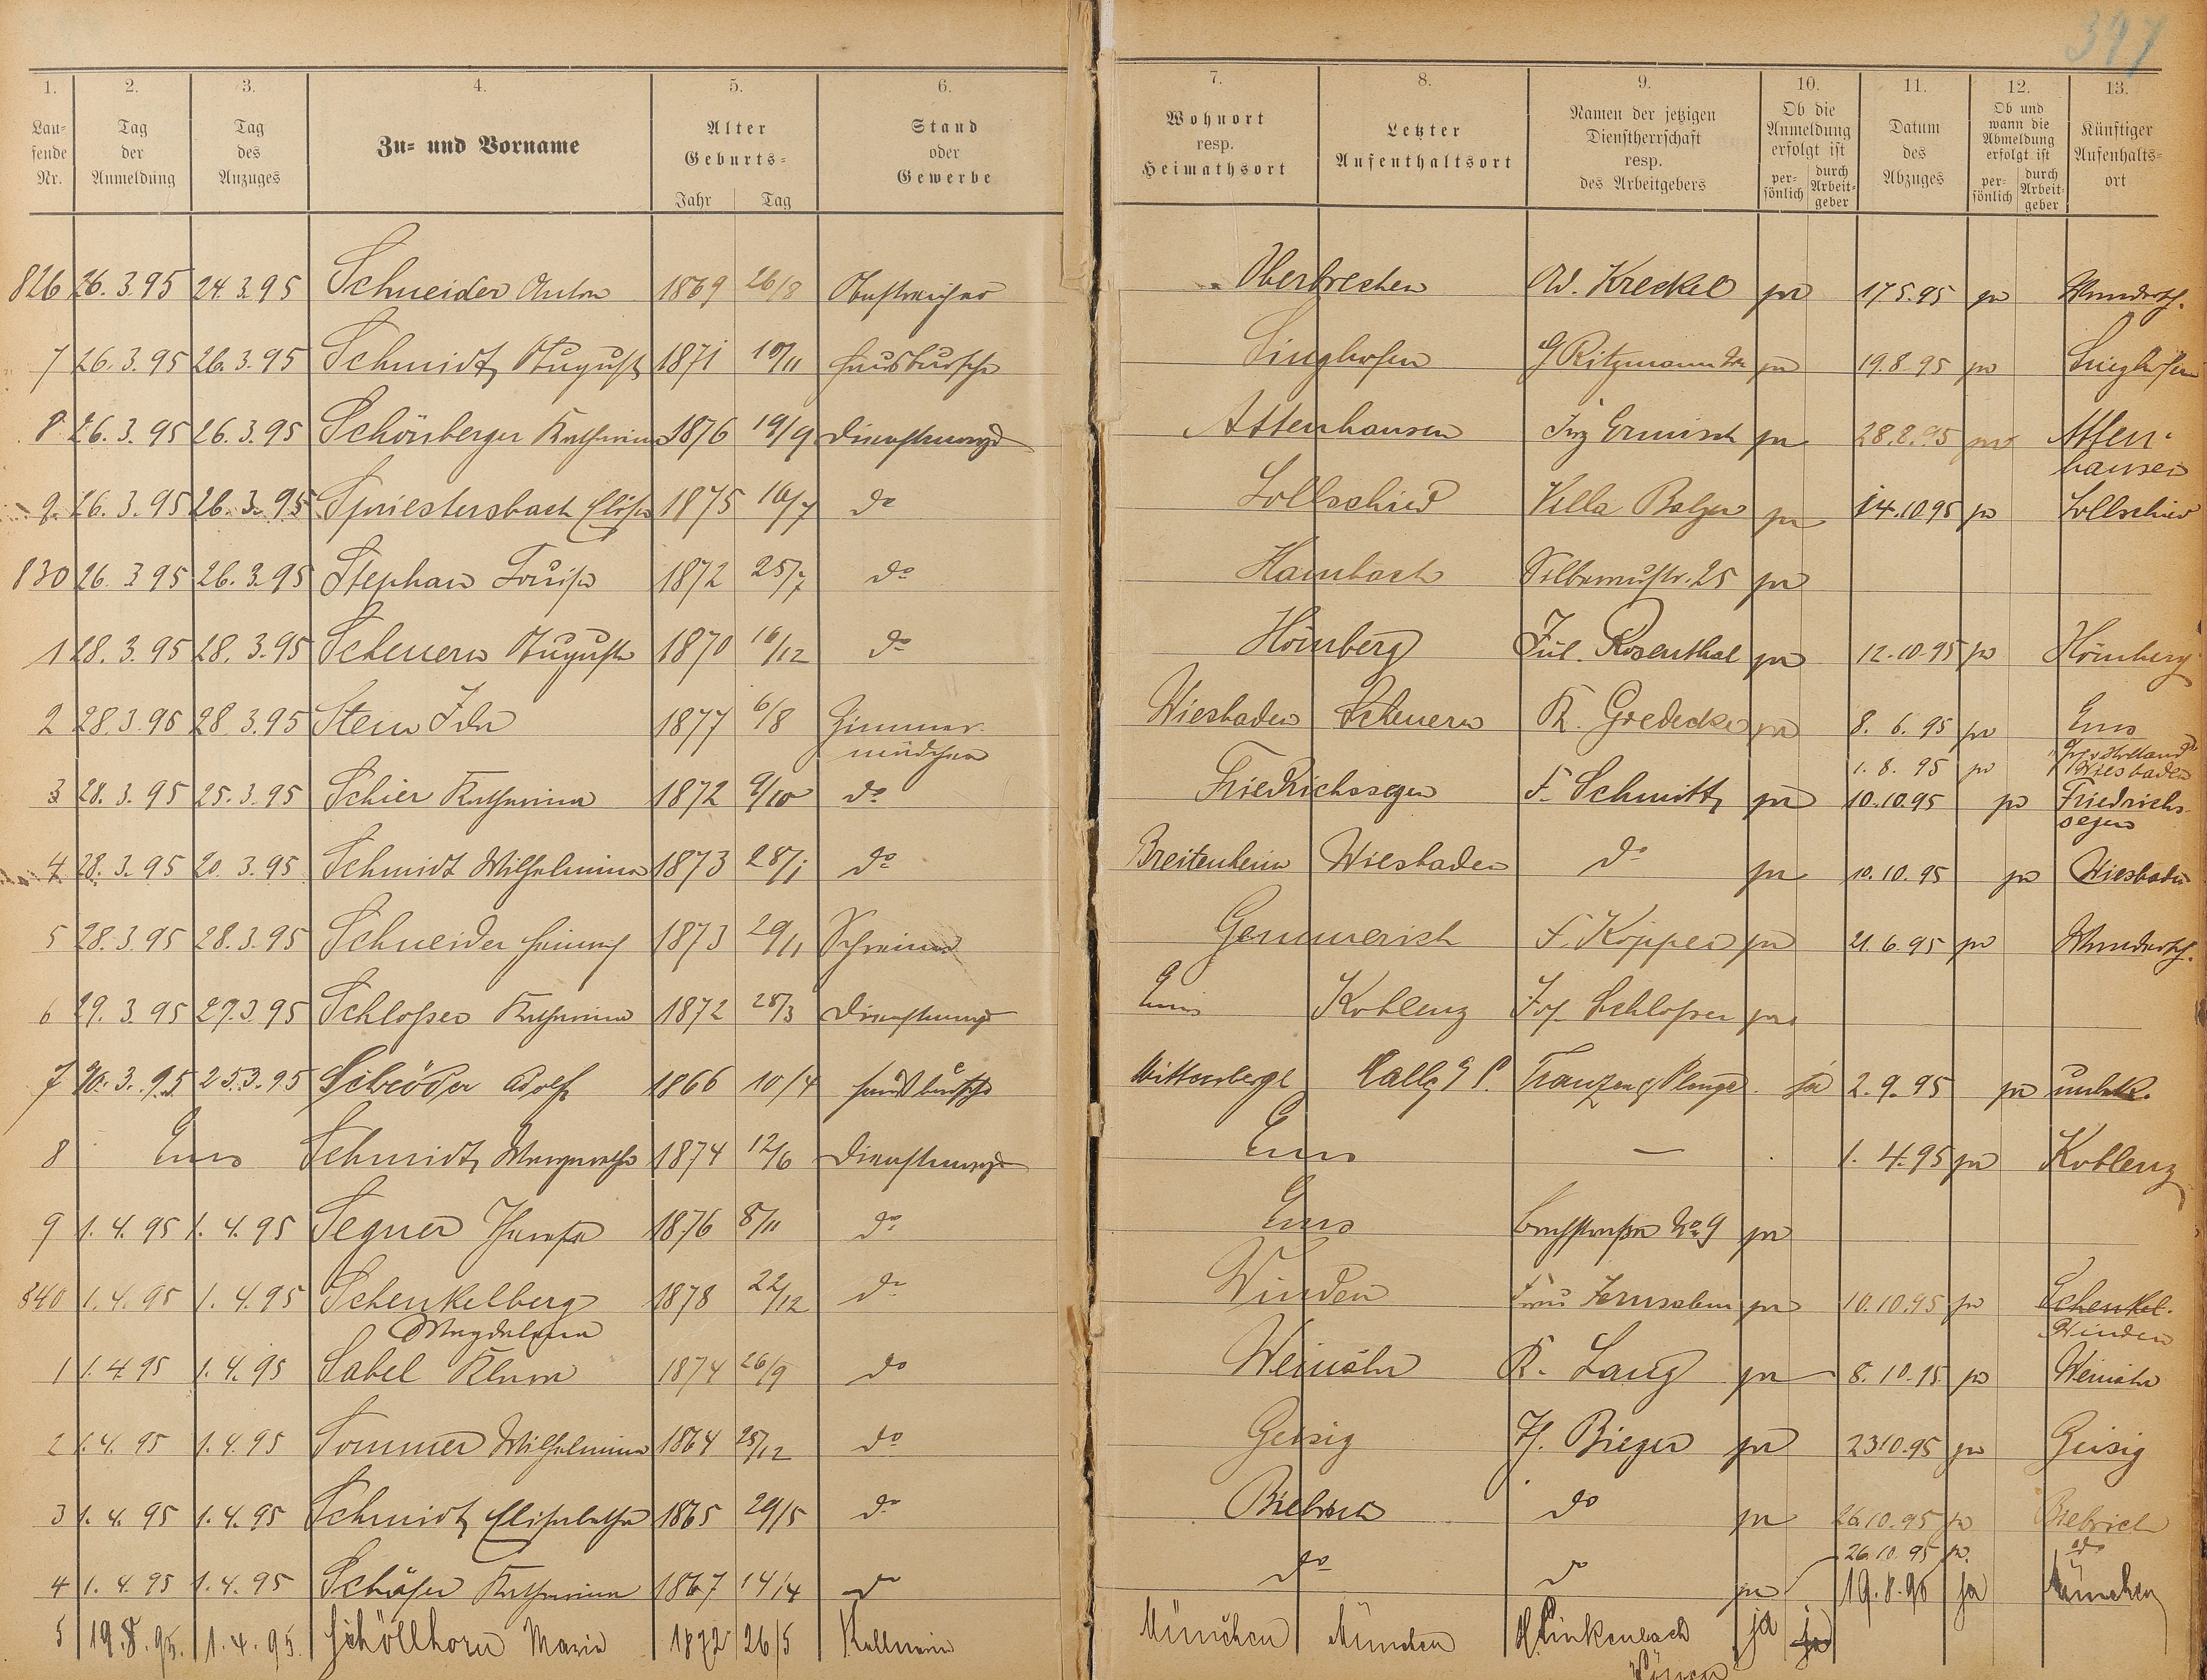 397
1. 2. 3. 4. 5. 6. 7. 8. 9. 10. 11. 12. 13.
Lau-
fende
Nr.
Tag
der
Anmeldung
Tag
des
Anzuges
Zu- und Vorname
Alter
Geburts-
Jahr Tag
Stand
oder
Gewerbe
Wohnort
resp.
Heimathsort
Letzter
Aufenthaltsort
Namen der jetzigen
Dienstherrschaft
resp.
des Arbeitgebers
Ob die
Anmeldung
erfolgt ist
per-
sönlich
durch
Arbeit-
geber
Datum
des
Abzuges
Ob und
wann die
Abmeldung
erfolgt ist
per-
sönlich
durch
Arbeit-
geber
Künftiger
Aufenthalts-
ort
826 26.3.95 24.3.95 Schneider Anton 1869 26/8 Oberbrechen Ad. Kreckel ja 17.5.95 ja Wandersch.
7 26.3.95 26.3.95 Schmidt August 1871 10/11 Hausbursche Singhofen G Ritzmann ja 19.8.95 ja Singhofen
8 26.3.95 26.3.95 Schönberger Katharina 1876 19/9 Dienstmagd Attenhausen Ermisch ja 28.8.95 ja Atten-
hausen
9 26.3.95 26.3.95 Spriestersbach Elise 1875 16/7 do Lollschied Villa Balzer ja 14.10.95 ja Lollschied
830 26.3.95 26.3.95 Stephan Louise 1872 25/7 do Hambach Silberaustr. 25 ja
1 28.3.95 28.3.95 Scheuern Auguste 1870 16/12 do Hömberg Jul. Rosenthal ja 12.10.95 ja Hömberg
2 28.3.95 28.3.95 Stein Ida 1877 6/8 Zimmer-
mädchen Wiesbaden Scheuern R. Goedecke ja 8.6.95 ja Ems
1.8.95 ja Wiesbaden
3 28.3.95 25.3.95 Schier Katharina 1872 9/10 do Friedrichssegen F. Schmitt ja 10.10.95 ja Friedrichs-
segen
4 28.3.95 20.3.95 Schmidt Wilhelmina 1873 28/1 do Breitenheim Wiesbaden do ja 10.10.95 ja Wiesbaden
5 28.3.95 28.3.95 Schneider Heinrich 1873 29/11 Schreiner Gemmerich F. Köpper ja 21.6.95 ja Wandersch.
6 29.3.95 27.3.95 Schlosser Katharina 1872 28/3 Dienstmagd Ems Koblenz Jos. Schlosser ja
7 30.3.95 25.3.95 Schröder Adolf 1866 10/4 Hausbursche Wittenberge Halle Franzen & Plenge ja 2.9.95 ja unbek.
8 Ems Schmidt Margarethe 1874 12/6 Dienstmagd Ems — 1.4.95 ja Koblenz
9 1.4.95 1.4.95 Segner Therese 1876 8/11 do Ems Bachstrasse No 9 ja
840 1.4.95 1.4.95 Schenkelberg
Magdalena 1878 22/12 do Winden Frau Jerusalem ja 10.10.95 ja Schenkel.
Winden
1 1.4.95 1.4.95 Sabel Klara 1874 26/9 do Weinähr K. Lang ja 8.10.95 ja Weinähr
2 1.4.95 1.4.95 Sommer Wilhelmina 1864 25/12 do Geisig H. Bieger ja 23.10.95 ja Geisig
3 1.4.95 1.4.95 Schmidt Elisabetha 1865 29/5 do Biebrich do ja 26.10.95 ja Biebrich
4 1.4.95 1.4.95 Schäfer Katharina 1867 14/4 do do do ja 26.10.95 ja do
5 19.8.95. 1.4.95. Schöllhorn Maria 1872 26/5 Kellnerin München München H. Linkenbach ja ja 19.8.95 ja München